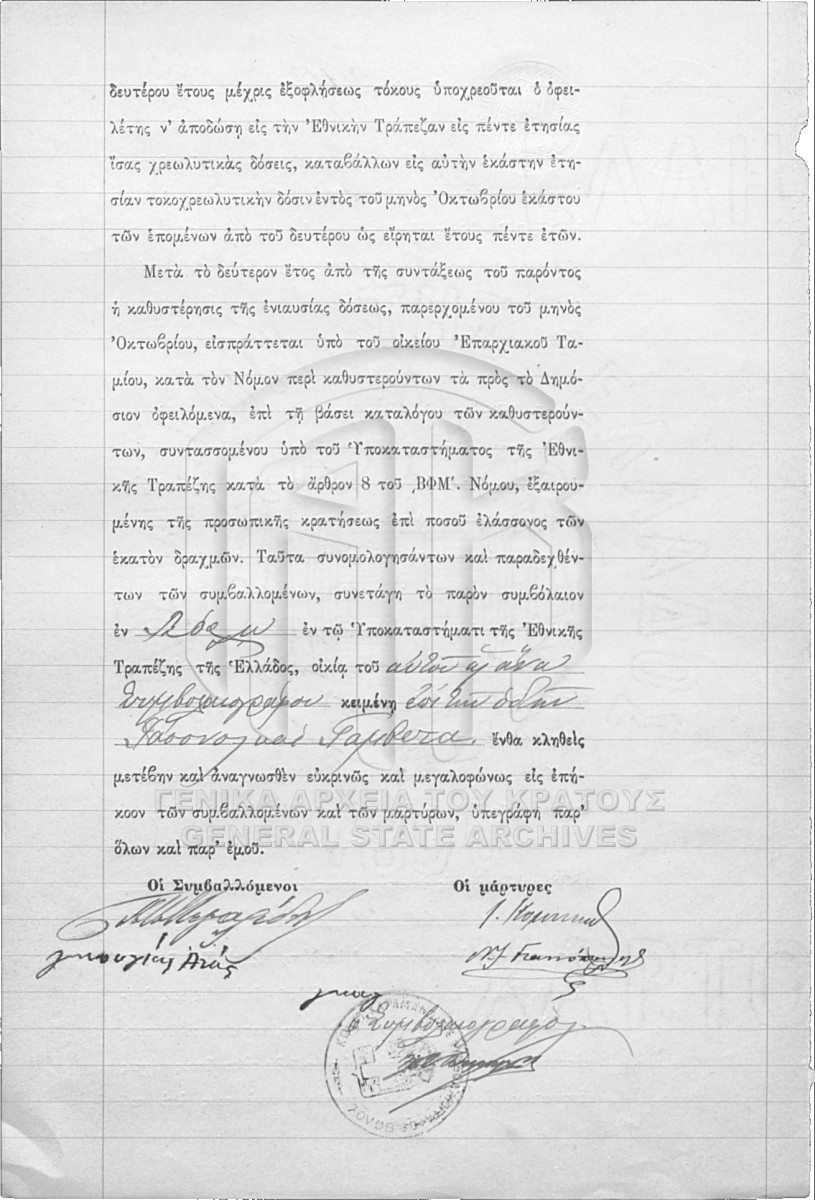 δευτέρου ἔτους μέχρις ἐξοφλήσεως τόκους ὑποχρεοῦται ὁ ὀφει-
λέτης ν' ἀποδώσῃ εἰς τὴν Ἐθνικὴν Τράπεζαν εἰς πέντε ἐτησίας
ἴσας χρεωλυτικὰς δόσεις, καταβάλλων εἰς αὐτὴν ἑκάστην ἐτη-
σίαν τοκοχρεωλυτικὴν δόσιν ἐντὸς τοῦ μηνὸς Ὀκτωβρίου ἑκάστου
τῶν ἑπομένων ἀπὸ τοῦ δευτέρου ὡς εἴρηται ἔτους πέντε ἐτῶν.
Μετὰ τὸ δεύτερον ἔτος ἀπὸ τῆς συντάξεως τοῦ παρόντος
ἡ καθυστέρησις τῆς ἐνιαυσίας δόσεως, παρερχομένου τοῦ μηνὸς
Ὀκτωβρίου, εἰσπράττεται ὑπὸ τοῦ οἰκείου Ἐπαρχιακοῦ Τα-
μίου, κατὰ τὸν Νόμον περὶ καθυστερούντων τὰ πρὸς τὸ Δημό-
σιον ὀφειλόμενα, ἐπὶ τῇ βάσει καταλόγου τῶν καθυστερούν-
των, συντασσομένου ὑπὸ τοῦ Ὑποκαταστήματος τῆς Ἐθνι-
κῆς Τραπέζης κατὰ τὸ ἄρθρον 8 τοῦ ͵ΒΦΜʹ. Νόμου, ἐξαιρου-
μένης τῆς προσωπικῆς κρατήσεως ἐπὶ ποσοῦ ἐλάσσονος τῶν
ἑκατὸν δραχμῶν. Ταῦτα συνομολογησάντων καὶ παραδεχθέν-
των τῶν συμβαλλομένων, συνετάγη τὸ παρὸν συμβόλαιον
ἐν ἐν τῷ Ὑποκαταστήματι τῆς Ἐθνικῆς
Τραπέζης τῆς Ἑλλάδος, οἰκίᾳ τοῦ
Συμβολαιογράφου κειμένῃ ἐπὶ τὴν ὁδὸν
ἔνθα κληθεὶς
μετέβην καὶ ἀναγνωσθὲν εὐκρινῶς καὶ μεγαλοφώνως εἰς ἐπή-
κοον τῶν συμβαλλομένων καὶ τῶν μαρτύρων, ὑπεγράφη παρ'
ὅλων καὶ παρ' ἐμοῦ.
ΓΕΝΙΚΑ ΑΡΧΕΙΑ ΤΟΥ ΚΡΑΤΟΥΣ
GENERAL STATE ARCHIVES
Οἱ Συμβαλλόμενοι Οἱ μάρτυρες
ὁ Συμβολαιογράφος